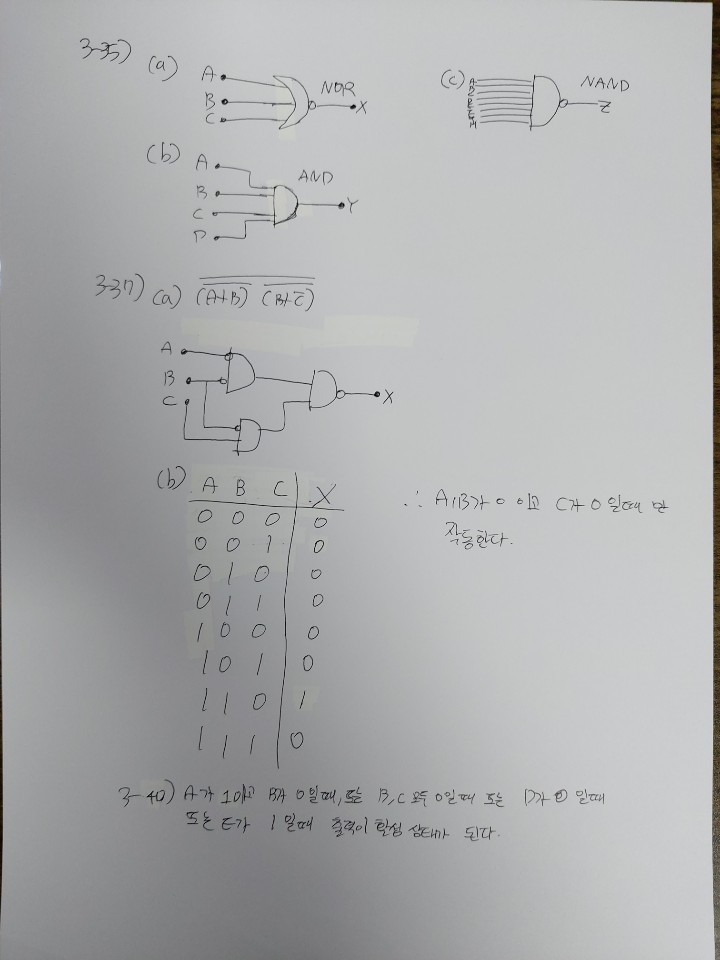 3-35) (a)
A
B
C
NOR
X
(c)
NAND
Z
(b)
A
B
C
D
AND
Y
3-37) (a) (A+B) (B+C̅)
A
B
C
X
(b) A B C X
0 0 0 0
0 0 1 0
0 1 0 0
0 1 1 0
1 0 0 0
1 0 1 0
1 1 0 1
1 1 1 0
∴ A,B가 0 이고 C가 0 일때 만
작동한다.
3-40) A가 1이고 B가 0일때, 또는 B,C 모두 0일때 또는 D가 0 일때
또는 E가 1 일때 출력이 활성 상태가 된다.